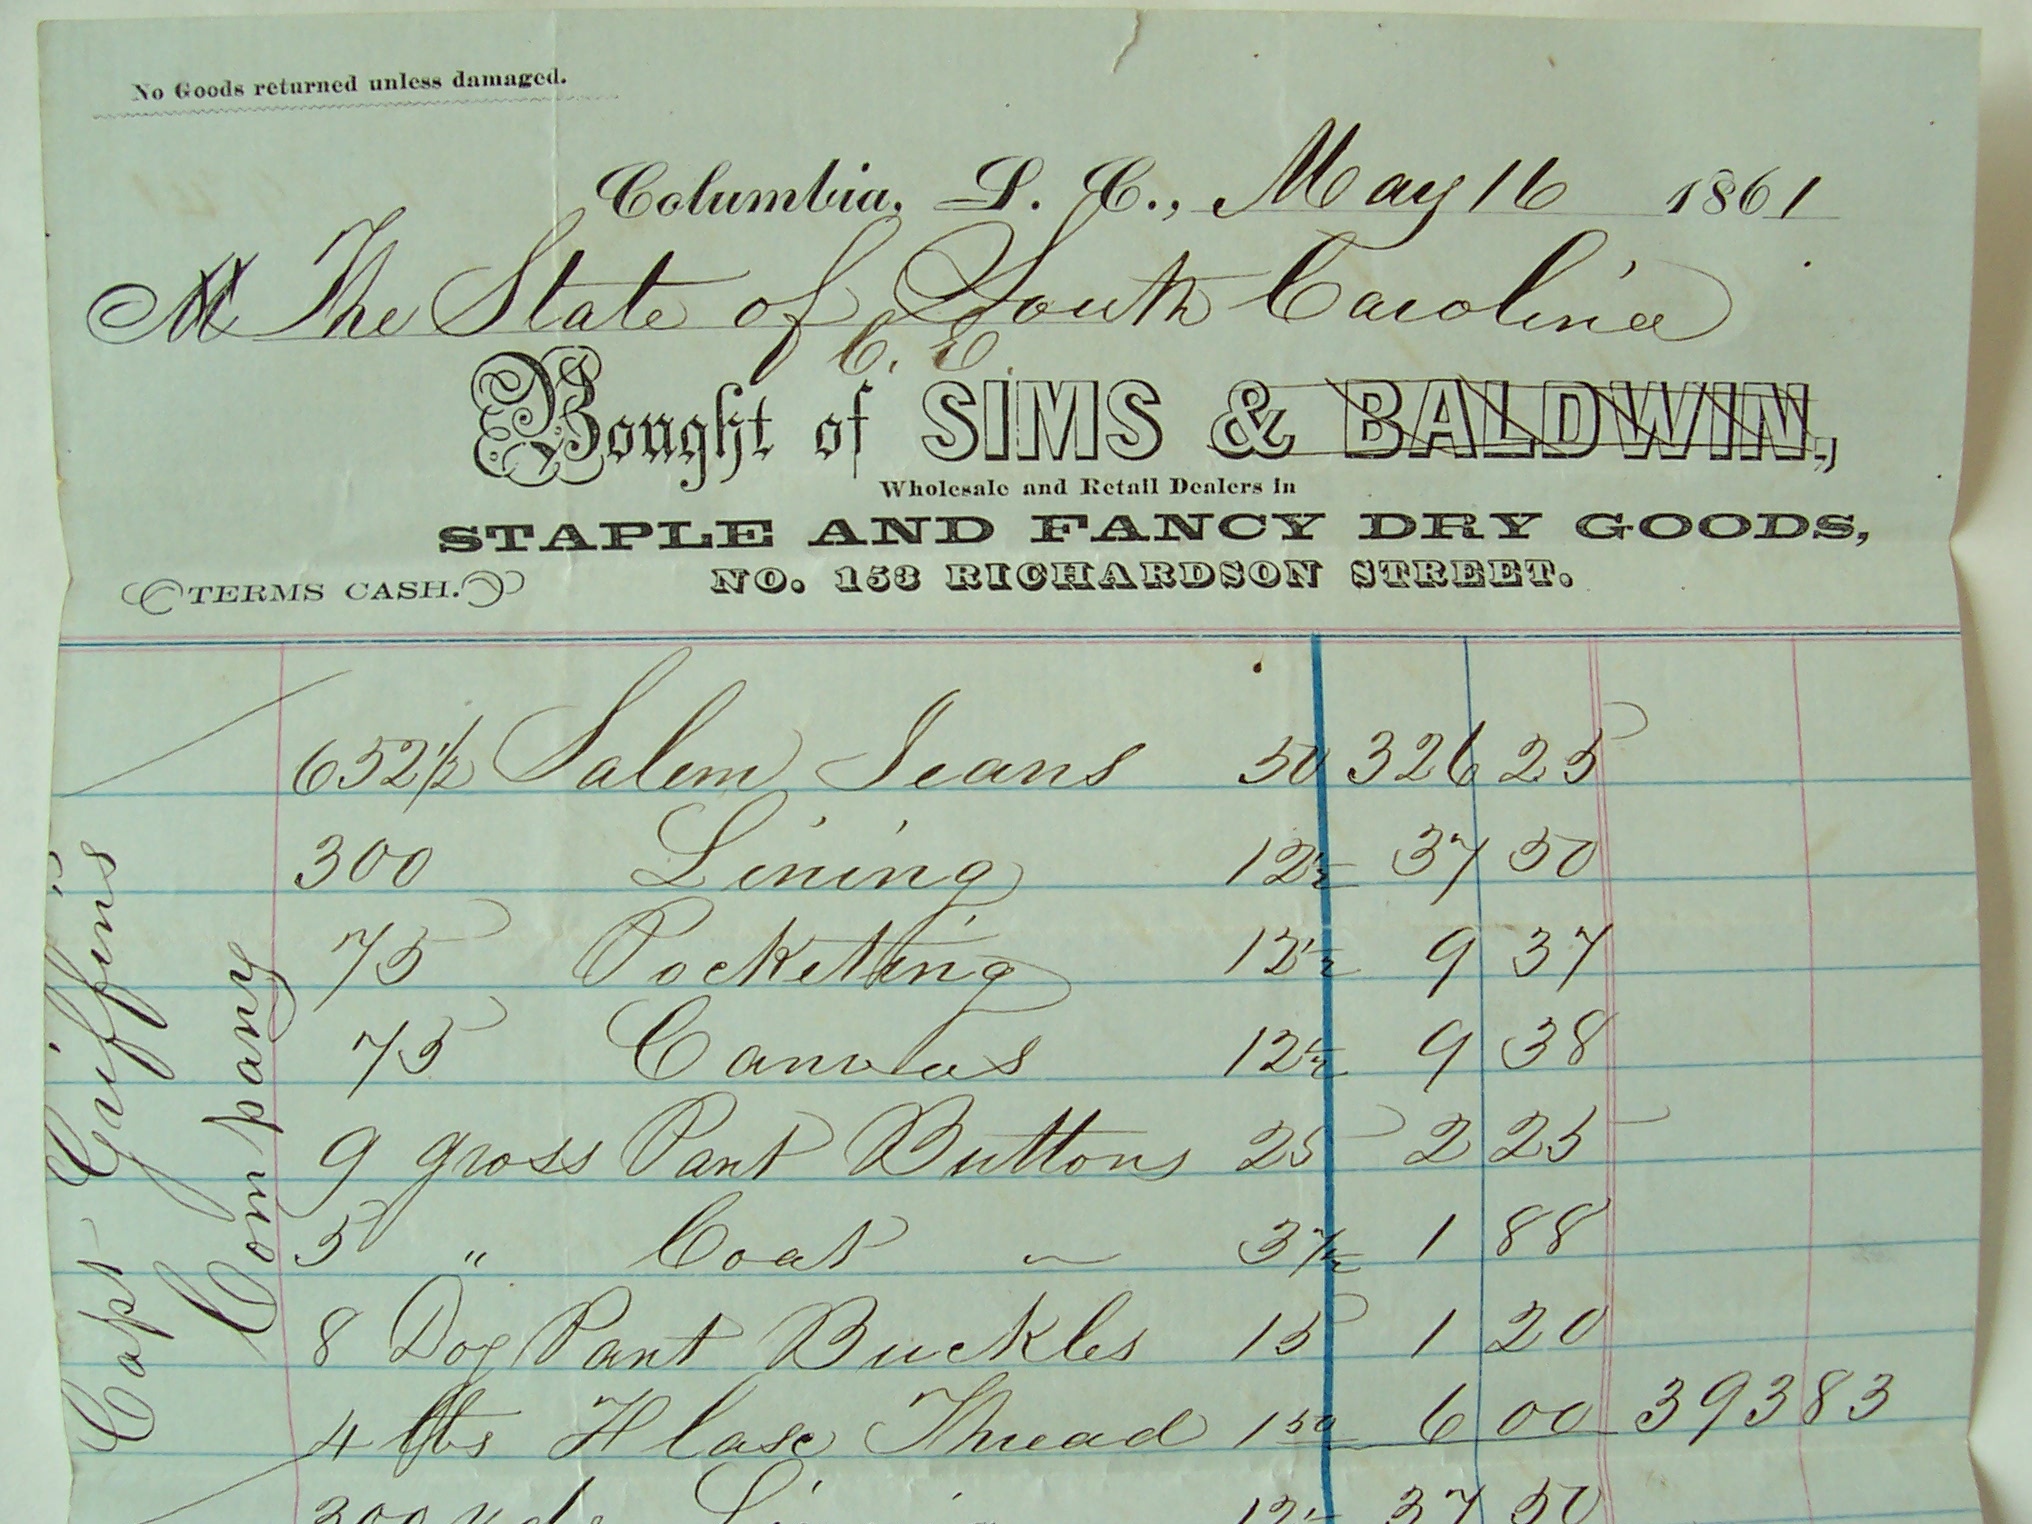 No Goods returned unless damaged.
Columbia, S. C., May 16 1861
M The State of South Carolina
C. E.
Bought of SIMS & BALDWIN,
Wholesale and Retail Dealers in
STAPLE AND FANCY DRY GOODS,
TERMS CASH. NO. 153 RICHARDSON STREET.
Capt Griffins
Company
652½ Salem Jeans 50 326 25
300 Lining 12½ 37 50
75 Pocketing 12½ 9 37
75 Canvas 12½ 9 38
9 gross Pant Buttons 25 2 25
5 " Coat — 37½ 1 88
8 Doz Pant Buckles 15 1 20
4 lbs Flax Thread 1 50 6 00 393 83
300 yds Lining 12½ 37 50